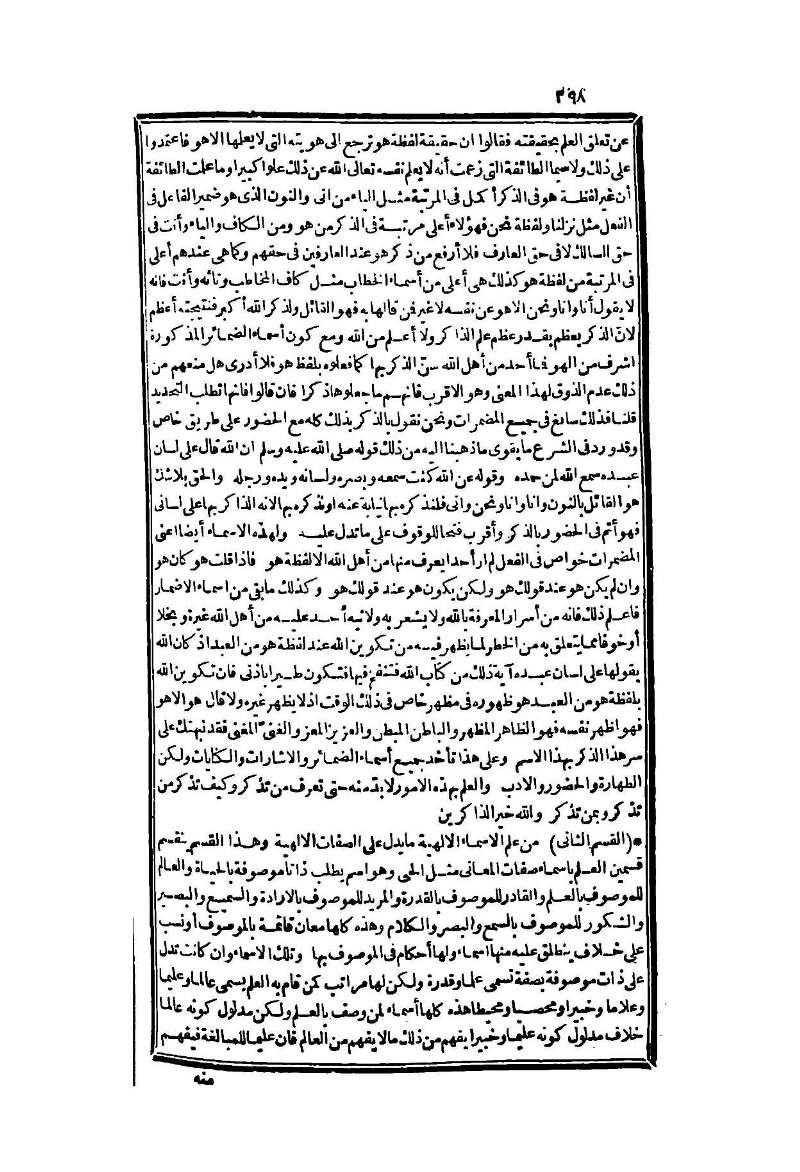 ٣٩٨
عن تعلق العلم بحقيقته فقالوا ان حقيقة لفظة هو ترجع الى هويته التى لا يعلمها الا هو فاعتمدوا
على ذلك ولا سيما الطائفة التى زعمت أنه لا يعلم نفسه تعالى الله عن ذلك علوا كبيرا وما علمت الطائفة
أن غير لفظة هو فى الذكر أكمل فى المرتبة مثل الياء من انى والنون الذى هو ضمير الفاعل فى
الفعل مثل نزلنا ولفظة نحن فهؤلاء أعلى مرتبة فى الذكر من هو ومن الكاف والياء وأنت فى
حق السالك لا فى حق العارف فلا أرفع من ذكر هو عند العارفين فى حقهم وكما هى عندهم أعلى
فى المرتبة من لفظة هو كذلك هى أعلى من أسماء الخطاب مثل كاف المخاطب وتائه وأنت فانه
لا يقول أنا وانا ونحن الا هو عن نفسه لا غير فمن قالها به فهو القائل ولذكر الله أكبر فنتيجته أعظم
لانّ الذكر يعظم بقدر عظم علم الذاكر ولا أعلم من الله ومع كون أسماء الضمائر المذكورة
اشرف من الهو فما أحد من أهل الله سنّ الذكر بها كما فعلوه بلفظ هو فلا أدرى هل منعهم من
ذلك عدم الذوق لهذا المعنى وهو الاقرب فانهم ما جعلوها ذكرا فان قالوا فانها تطلب التحديد
قلنا فذلك سايغ فى جميع المضمرات ونحن نقول بالذكر بذلك كله مع الحضور على طريق خاص
وقد ورد فى الشرع ما يقوى ما ذهبنا اليه من ذلك قوله صلى الله عليه وسلم ان الله قال على لسان
عبده سمع الله لمن حمده وقوله عن الله كنت سمعه وبصره ولسانه ويده ورجله والحق بلا شك
هو القائل بالنون وانا وانا ونحن وانى فلنذكره بها نيابة عنه اونذكره به لانه الذاكر بها على لسانى
فهو أتم فى الحضور بالذكر وأقرب فتحا للوقوف على ما تدل عليه ولهذه الاسماء أيضا اعنى
المضمرات خواص فى الفعل لم أر أحدا يعرف منها من أهل الله الا لفظة هو فاذا قلت هو كان هو
وان لم يكن هو عند قولك هو ولكن يكون هو عند قولك هو وكذلك ما بقى من اسماء الاضمار
فاعلم ذلك فانه من أسرار المعرفة بالله ولا يشعر به ولا نبه أحد عليه من أهل الله غيرة وبخلا
أو خوفا مما يتعلق به من الخطر لما يظهر فيه من تكوين الله عند لفظة هو من العبد اذ كان الله
يقولها على لسان عبده آية ذلك من كتاب الله فتنفخ فيها فتكون طيرا باذنى فان تكوين الله
بلفظة هو من العبد هو ظهوره فى مظهر خاص فى ذلك الوقت اذ لا يظهر غيره ولا قال هو الا هو
فهو اظهر نفسه فهو الظاهر المظهر والباطن المبطن والعزيز المعز والغنىّ المغنى فقد نبهتك على
سر هذا الذكر بهذا الاسم وعلى هذا تأخذ جميع أسماء الضمائر والاشارات والكنايات ولكن
الطهارة والحضور والادب والعلم بهذه الامور لابدّ منه حتى تعرف من تذكر وكيف تذكر من
تذكر وبمن تذكر والله خير الذاكرين
*(القسم الثانى) من علم الاسماء الالهية ما يدل على الصفات الالهية وهذا القسم ينقسم
قسمين العلم باسماء صفات المعانى مثل الحى وهو اسم يطلب ذاتا موصوفة بالحياة والعالم
للموصوف بالعلم والقادر للموصوف بالقدرة والمريد للموصوف بالارادة والسميع والبصير
والشكور للموصوف بالسمع والبصر والكلام وهذه كلها معان قائمة بالموصوف أو نسب
على خلاف ينطلق عليه منها اسماء ولها أحكام فى الموصوف بها وتلك الاسماء وان كانت تدل
على ذات موصوفة بصفة تسمى علما وقدرة ولكن لها مراتب كمن قام به العلم يسمى عالما وعليما
وعلاما وخبيرا ومحصيا ومحيطا هذه كلها أسماء لمن وصف بالعلم ولكن مدلول كونه عالما
خلاف مدلول كونه عليما وخبيرا يفهم من ذلك ما لا يفهم من العالم فان عليما للمبالغة فيفهم
منه